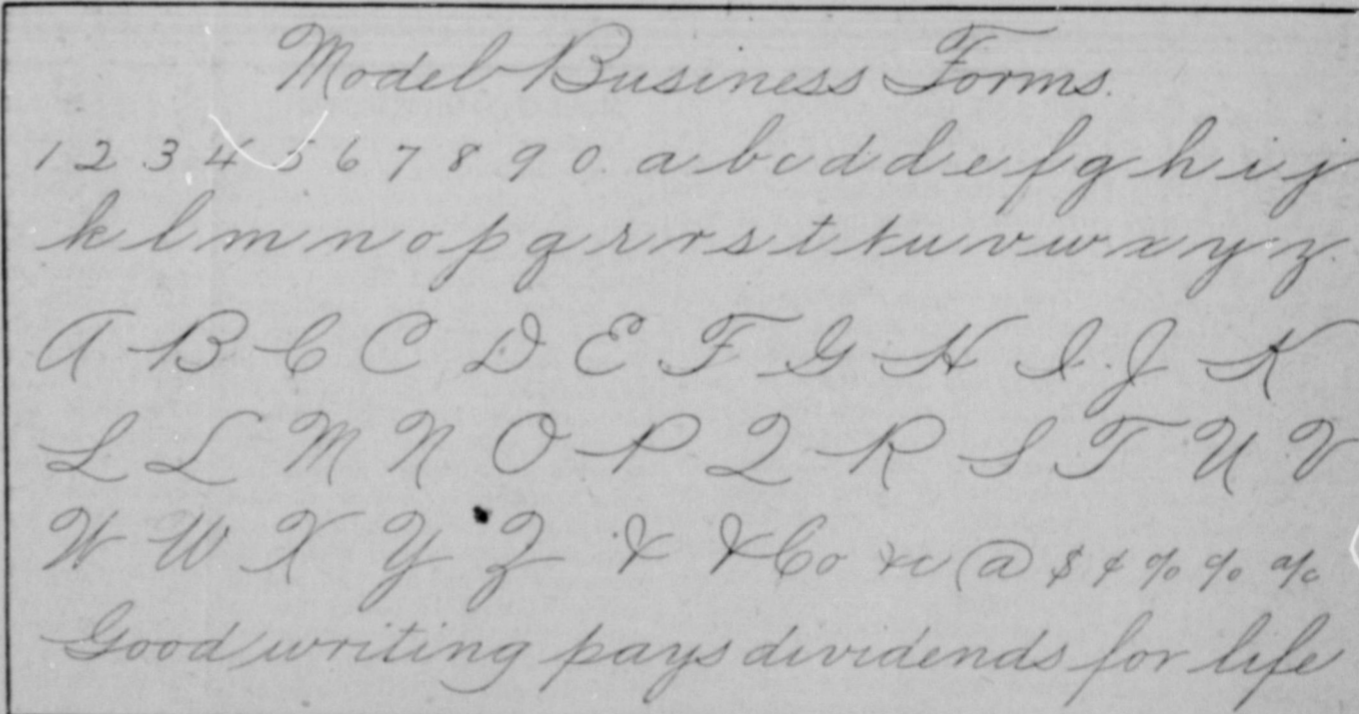 Model Business Forms.
1 2 3 4 5 6 7 8 9 0. a b c d d e f g h i j
k l m n o p q r r s t t u v w x y z.
A B C C D E F G H I J K
L L M N O P Q R S T U V
W W X Y Z & & Co &c @ $ ¢ % % a/c
Good writing pays dividends for life